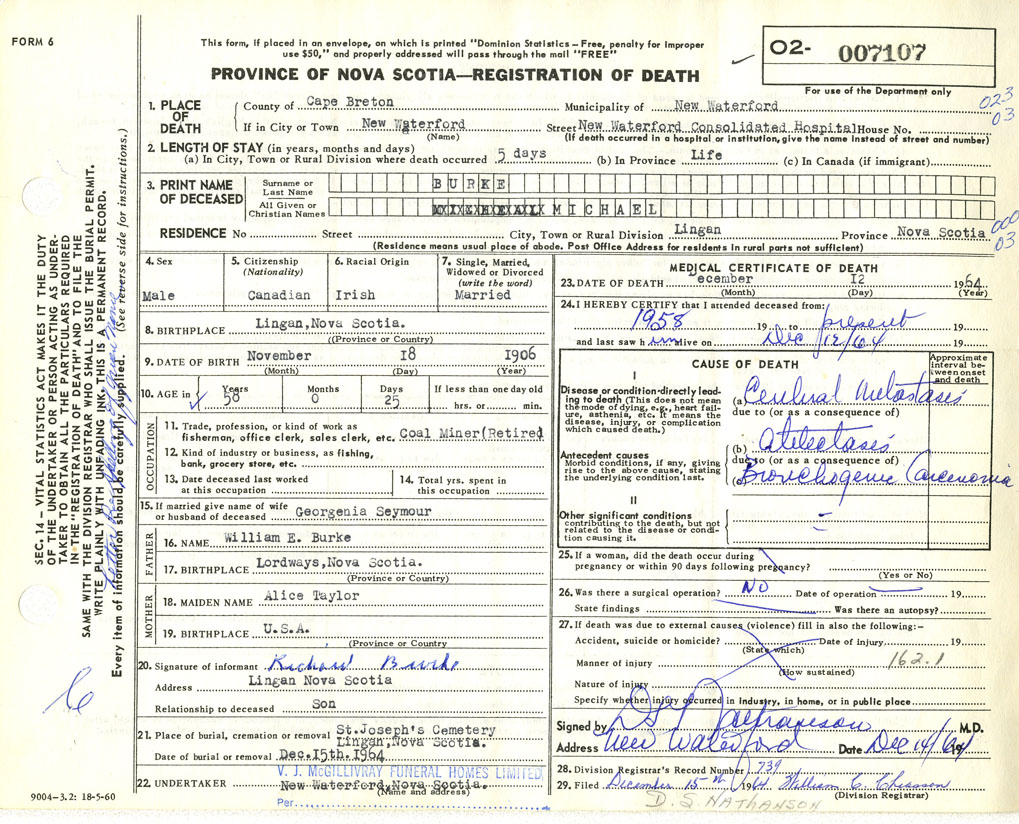 FORM 6
This form, if placed in an envelope, on which is printed "Dominion Statistics – Free, penalty for improper
use $50," and properly addressed will pass through the mail "FREE"
PROVINCE OF NOVA SCOTIA—REGISTRATION OF DEATH
O2- 007107
For use of the Department only
023
03
1. PLACE OF DEATH
County of Cape Breton Municipality of New Waterford
If in City or Town New Waterford Street New Waterford Consolidated Hospital House No.
(Name) (If death occurred in a hospital or institution, give the name instead of street and number)
2. LENGTH OF STAY (in years, months and days)
(a) In City, Town or Rural Division where death occurred 5 days (b) In Province Life (c) In Canada (if immigrant)
3. PRINT NAME OF DECEASED
Surname or Last Name BURKE
All Given or Christian Names MICHAEL
000
03
RESIDENCE No Street City, Town or Rural Division Lingan Province Nova Scotia
(Residence means usual place of abode. Post Office Address for residents in rural parts not sufficient)
4. Sex Male
5. Citizenship (Nationality) Canadian
6. Racial Origin Irish
7. Single, Married, Widowed or Divorced (write the word) Married
8. BIRTHPLACE Lingan, Nova Scotia.
((Province or Country)
9. DATE OF BIRTH November 18 1906
(Month) (Day) (Year)
10. AGE in Years 58 Months 0 Days 25 If less than one day old hrs. or min.
OCCUPATION
11. Trade, profession, or kind of work as
fisherman, office clerk, sales clerk, etc. Coal Miner (Retired
12. Kind of industry or business, as fishing,
bank, grocery store, etc.
13. Date deceased last worked
at this occupation
14. Total yrs. spent in
this occupation
15. If married give name of wife
or husband of deceased Georgenia Seymour
FATHER
16. NAME William E. Burke
17. BIRTHPLACE Lordways, Nova Scotia.
(Province or Country)
MOTHER
18. MAIDEN NAME Alice Taylor
19. BIRTHPLACE U.S.A.
(Province or Country
20. Signature of informant Richard Burke
Address Lingan Nova Scotia
Relationship to deceased Son
21. Place of burial, cremation or removal St. Joseph's Cemetery
Lingan, Nova Scotia.
Date of burial or removal Dec. 15th. 1964
V. J. McGILLIVRAY FUNERAL HOMES LIMITED,
22. UNDERTAKER New Waterford, Nova Scotia.
(Name and address)
Per
9004-3.2: 18-5-60
MEDICAL CERTIFICATE OF DEATH
23. DATE OF DEATH ecember 12 1964
(Month) (Day) (Year)
24. I HEREBY CERTIFY that I attended deceased from:
1958 19 to present 19
and last saw him alive on Dec 12/64 19
CAUSE OF DEATH
Approximate interval between onset and death
I
Disease or condition directly leading to death (This does not mean
the mode of dying, e.g., heart failure, asthenia, etc. It means the
disease, injury, or complication
which caused death.)
(a) Cerebral Metastases
due to (or as a consequence of)
(b) Atelectases
Antecedent causes
Morbid conditions, if any, giving
rise to the above cause, stating
the underlying condition last.
due to (or as a consequence of)
(c) Bronchogenic Carcenoma
II
Other significant conditions
contributing to the death, but not
related to the disease or condition causing it.
25. If a woman, did the death occur during
pregnancy or within 90 days following pregnancy?
(Yes or No)
26. Was there a surgical operation? NO Date of operation 19
State findings Was there an autopsy?
27. If death was due to external causes (violence) fill in also the following:-
Accident, suicide or homicide? Date of injury 19
(State which)
Manner of injury 162.1
(How sustained)
Nature of injury
Specify whether injury occurred in industry, in home, or in public place
Signed by M.D.
Address New Waterford Date Dec 14/64 19
28. Division Registrar's Record Number 739
29. Filed December 15th 1964 William C. Chiasson
(Division Registrar)
D. S. NATHANSON
SEC. 14 – VITAL STATISTICS ACT MAKES IT THE DUTY
OF THE UNDERTAKER OR PERSON ACTING AS UNDERTAKER TO OBTAIN ALL THE PARTICULARS REQUIRED
IN THE "REGISTRATION OF DEATH" AND TO FILE THE
SAME WITH THE DIVISION REGISTRAR WHO SHALL ISSUE THE BURIAL PERMIT.
WRITE PLAINLY WITH UNFADING INK. THIS IS A PERMANENT RECORD.
Every item of information should be carefully supplied. (See reverse side for instructions.)